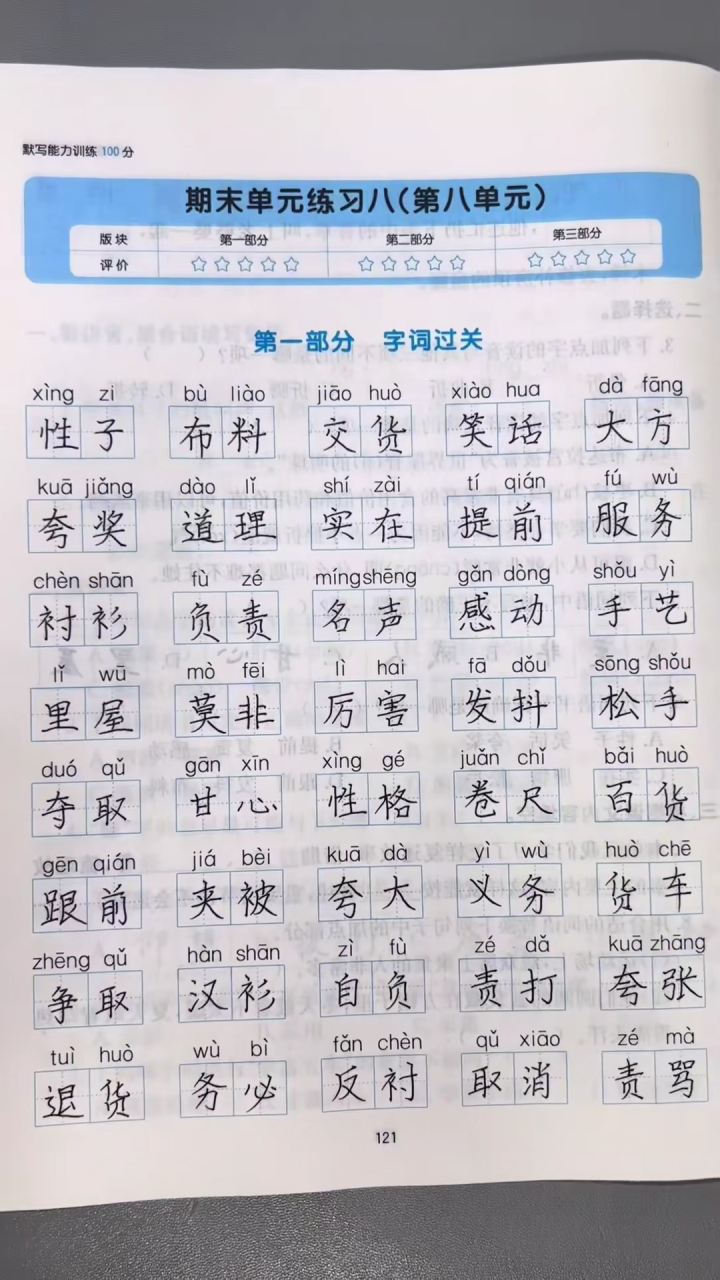 默写能力训练100分
期末单元练习八(第八单元)
版块 第一部分 第二部分 第三部分
评价 ☆☆☆☆☆ ☆☆☆☆☆ ☆☆☆☆☆
第一部分 字词过关
xìng zi bù liào jiāo huò xiào hua dà fāng
性子 布料 交货 笑话 大方
kuā jiǎng dào lǐ shí zài tí qián fú wù
夸奖 道理 实在 提前 服务
chèn shān fù zé míng shēng gǎn dòng shǒu yì
衬衫 负责 名声 感动 手艺
lǐ wū mò fēi lì hai fā dǒu sōng shǒu
里屋 莫非 厉害 发抖 松手
duó qǔ gān xīn xìng gé juǎn chǐ bǎi huò
夺取 甘心 性格 卷尺 百货
gēn qián jiá bèi kuā dà yì wù huò chē
跟前 夹被 夸大 义务 货车
zhēng qǔ hàn shān zì fù zé dǎ kuā zhāng
争取 汉衫 自负 责打 夸张
tuì huò wù bì fǎn chèn qǔ xiāo zé mà
退货 务必 反衬 取消 责骂
121